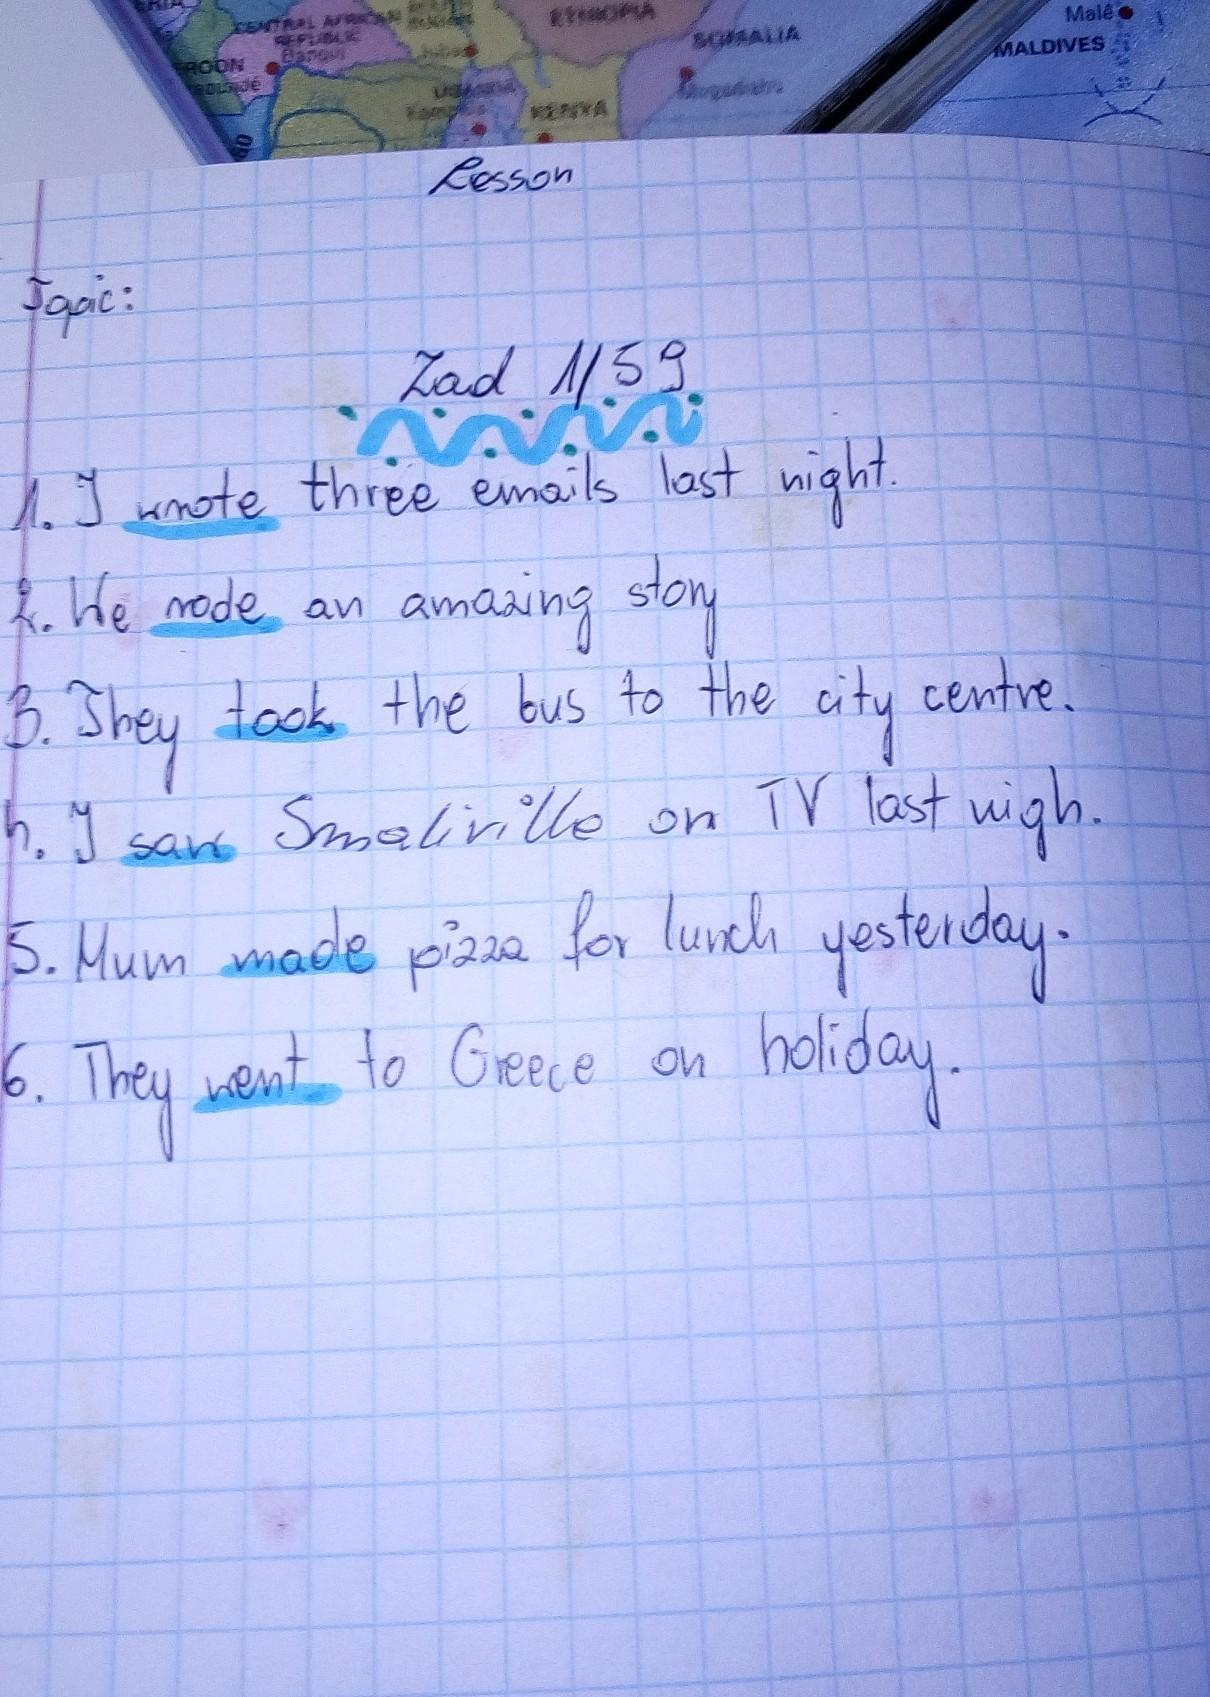 CENTRAL AFRICAN
REPUBLIC
Bangui
ETHIOPIA
SOMALIA
Malé
MALDIVES
KENYA
Lesson
Topic:
Zad 1/59
1. I wrote three emails last night.
2. We rode an amazing story
3. They took the bus to the city centre.
4. I saw Smaliville on TV last nigh.
5. Mum made pizza for lunch yesterday.
6. They went to Greece on holiday.